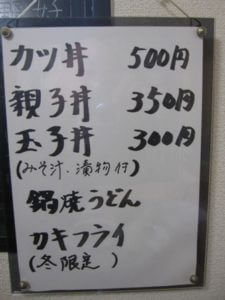 カツ丼 500円
親子丼 350円
玉子丼 300円
(みそ汁、漬物付)
鍋焼うどん
カキフライ
(冬限定)